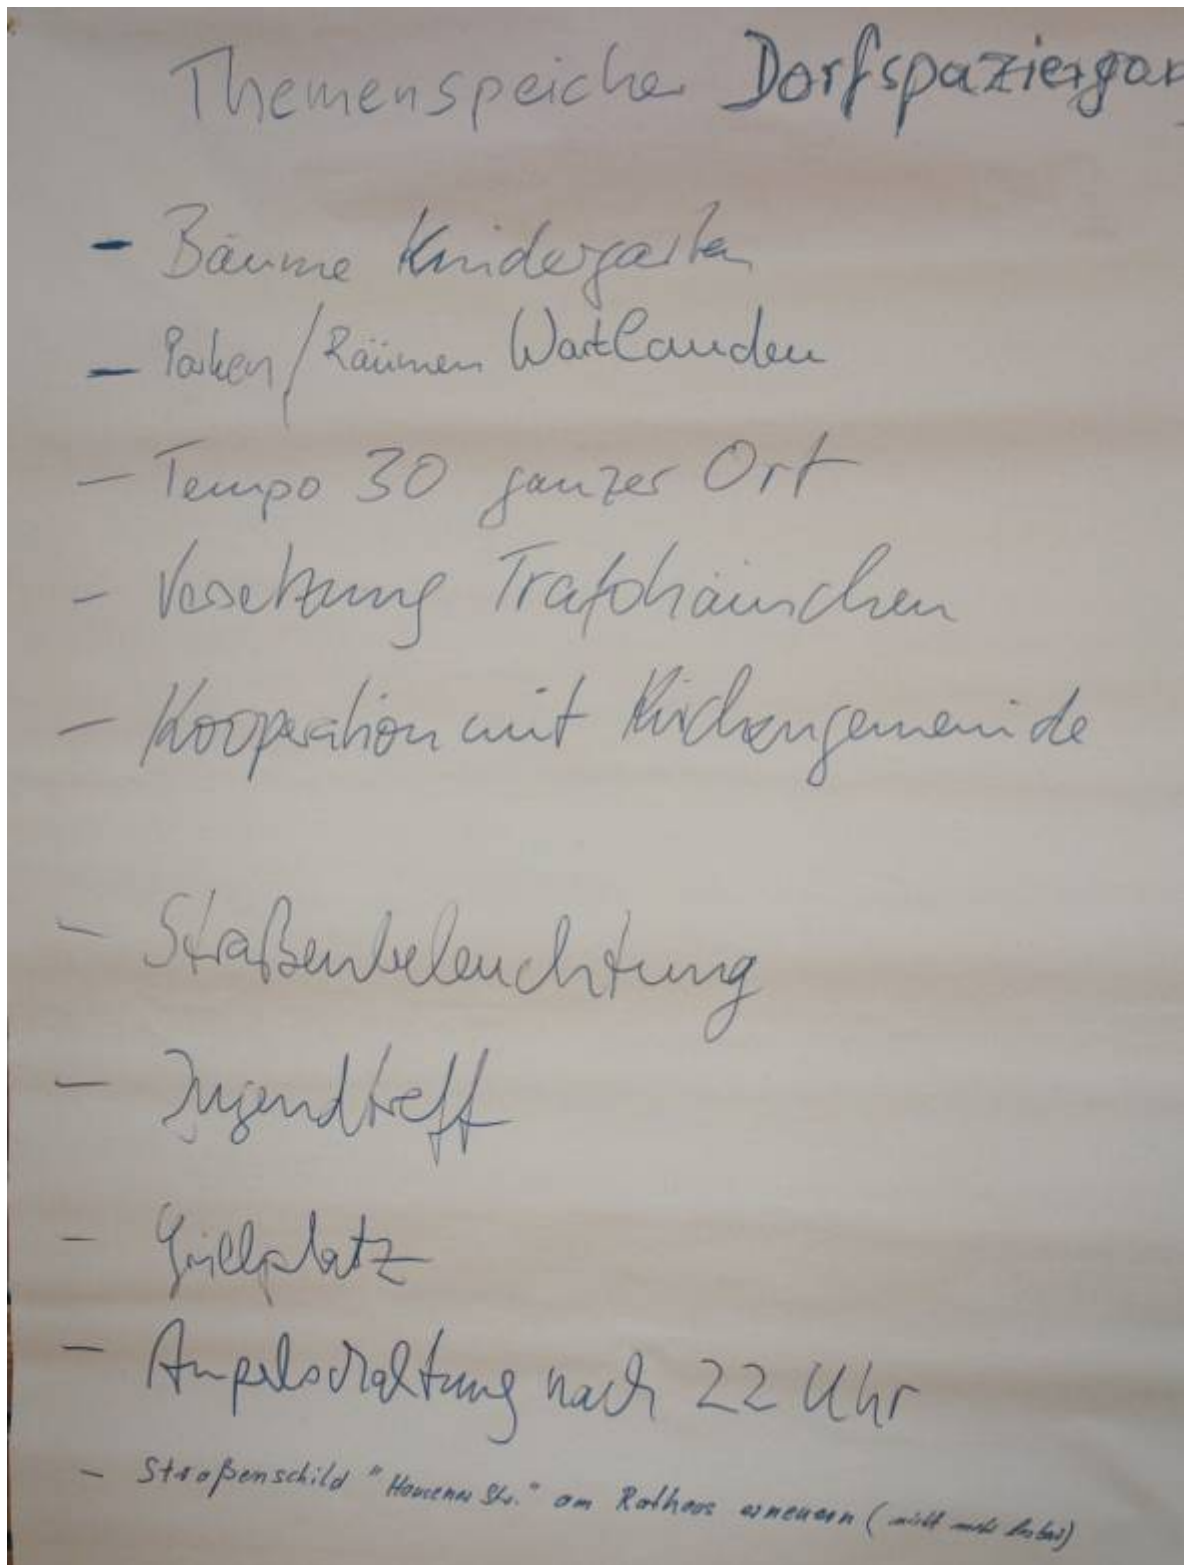 Themenspeicher Dorfspaziergan
- Bäume Kindergarten
- Parken/Räumen Wartlanden
- Tempo 30 ganzer Ort
- Versetzung Trafohäuschen
- Kooperation mit Kirchengemeinde
- Straßenbeleuchtung
- Jugendtreff
- Grillplatz
- Ampelschaltung nach 22 Uhr
- Straßenschild "Hausener Str." am Rathaus erneuern (nicht mehr lesbar)